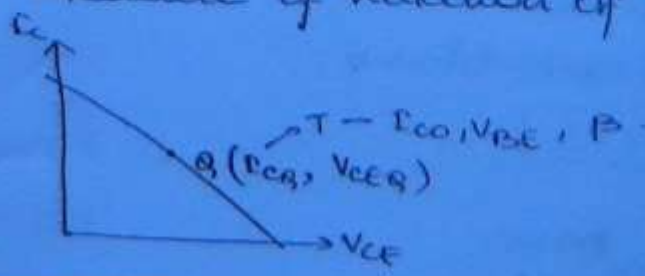 of
I_C
T - I_CO, V_BE, β
Q (I_CQ, V_CEQ)
V_CE